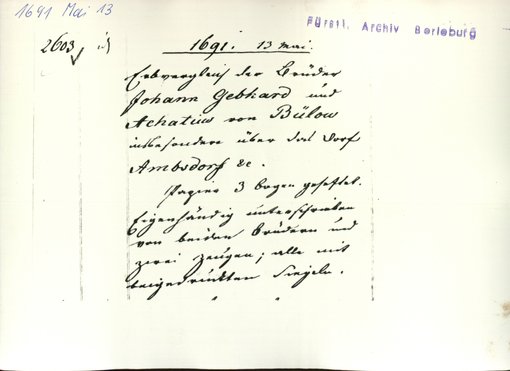 1691 Mai 13
Fürstl. Archiv Berleburg
2603
1691. 13 Mai.
Erbvergleich der Brüder
Johann Gebhard und
Achatius von Bülow
insbesondere über das Dorf
Ambsdorf &c.
Papier 3 bogen geheftet.
Eigenhändig unterschrieben
von beiden Brüdern und
zwei Zeugen; alle mit
beigedrückten Siegeln.